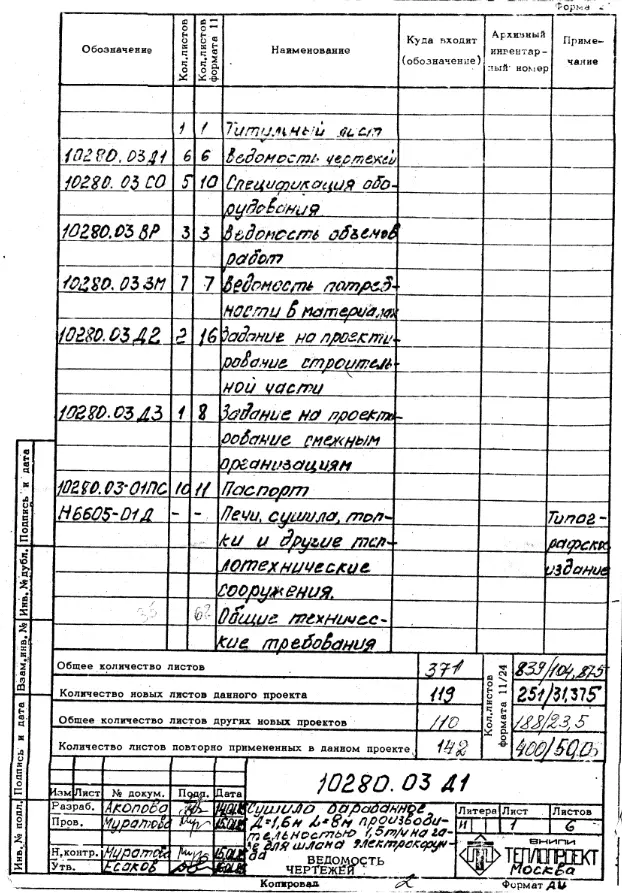 Форма 2
Обозначение
Кол.листов
Кол.листов формата 11
Наименование
Куда входит (обозначение)
Архивный инвентарный номер
Примечание
1 1 Титульный лист
10280.03Д1 6 6 Ведомость чертежей
10280.03 СО 5 10 Спецификация обо-
рудования
10280.03 ВР 3 3 Ведомость объемов
работ
10280.03 ЗМ 7 7 Ведомость потреб-
ности в материалах
10280.03 Д2 2 16 Задание на проекти-
рование строитель-
ной части
10280.03 Д3 1 8 Задание на проекти-
рование смежным
организациям
10280.03-01ПС 10 11 Паспорт
Н6605-01Д - - Печи, сушила, топ- Типог-
ки и другие теп- рафское
лотехнические издание
сооружения.
Общие техничес-
кие требования
Общее количество листов 371 839/104,875
Количество новых листов данного проекта 119 251/31,375
Общее количество листов других новых проектов 110 188/23,5
Количество листов повторно примененных в данном проекте 142 400/50,0
Кол.листов формата 11/24
Инв.№ подл. Подпись и дата Взам.инв.№ Инв.№ дубл. Подпись и дата
10280.03 Д1
Изм Лист № докум. Подп. Дата
Разраб. Акопова
Пров. Муратова
Н.контр. Муратова
Утв. Есаков
Сушило барабанное
Д=1,6м L=8м производи-
тельностью 1,5т/ч на га-
зе для шлама электрокорун-
да
ВЕДОМОСТЬ
ЧЕРТЕЖЕЙ
Литера Лист Листов
И 1 6
ВНИПИ
ТЕПЛОПРОЕКТ
Москва
Копировал Формат А4
2